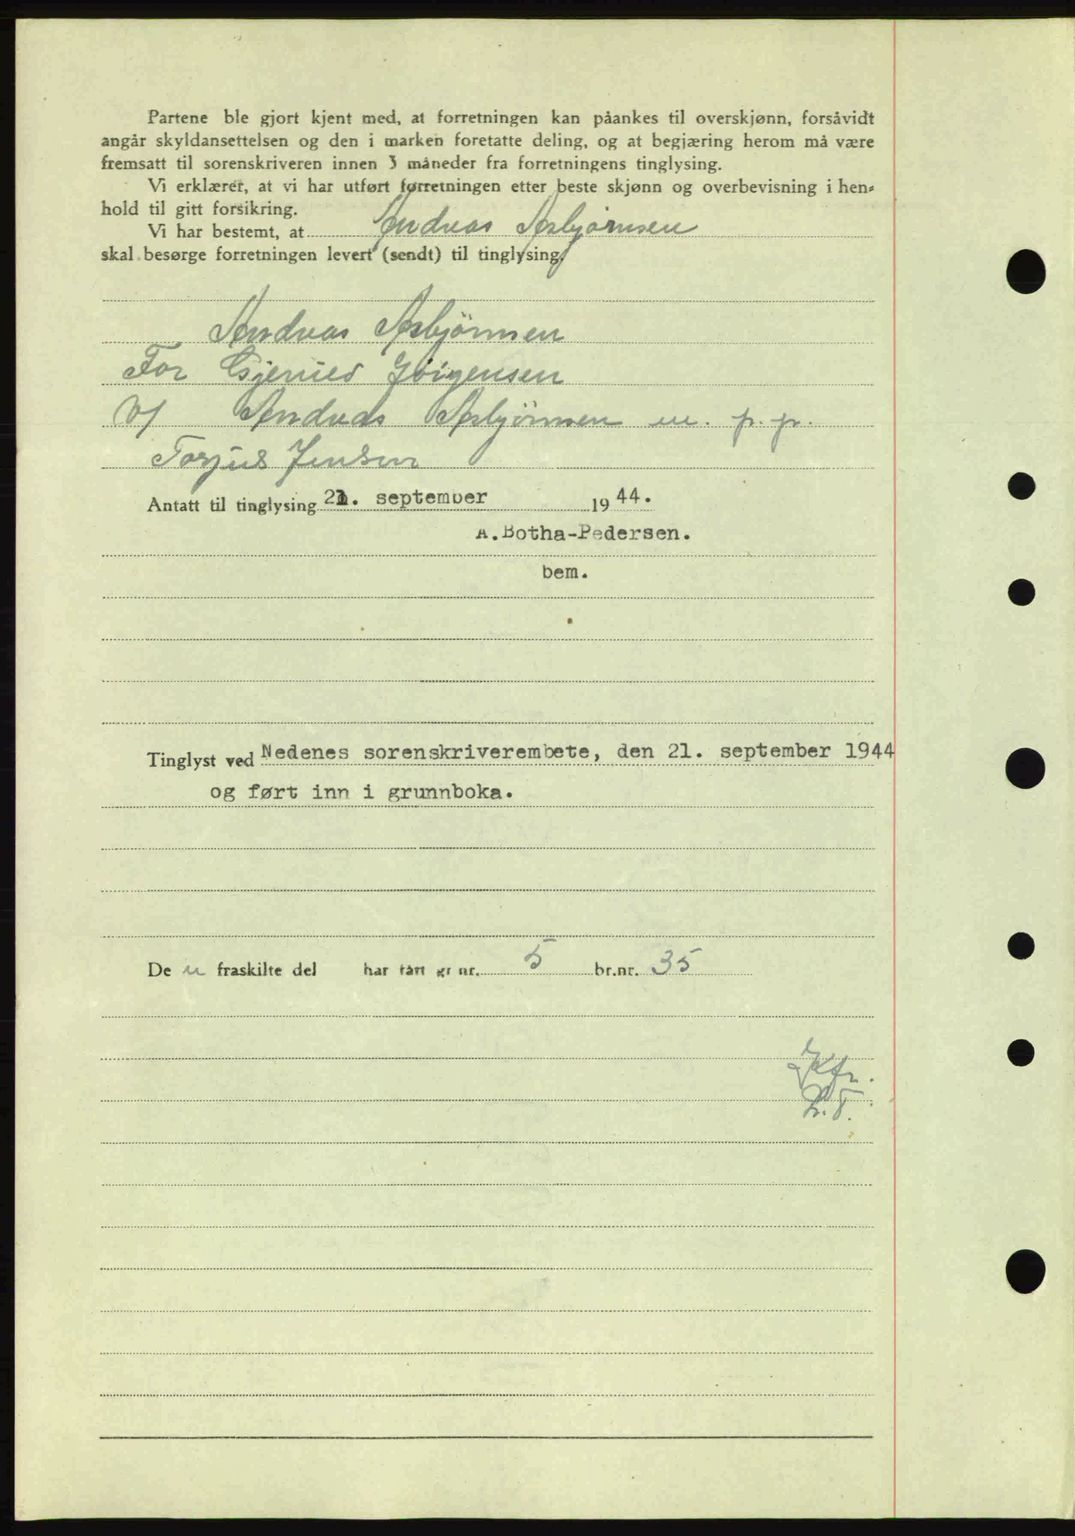 Partene ble gjort kjent med, at forretningen kan påankes til overskjønn, forsåvidt
angår skyldansettelsen og den i marken foretatte deling, og at begjæring herom må være
fremsatt til sorenskriveren innen 3 måneder fra forretningens tinglysing.
Vi erklærer, at vi har utført forretningen etter beste skjønn og overbevisning i hen-
hold til gitt forsikring.
Vi har bestemt, at Andreas Asbjørnsen
skal besørge forretningen levert (sendt) til tinglysing.
Andreas Asbjörnsen
For Jörgensen
v/ Andreas Asbjörnsen m. p. p.
Torjus Jensen
Antatt til tinglysing 21. september 1944.
A.Botha-Pedersen.
bem.
Tinglyst ved Nedenes sorenskriverembete, den 21. september 1944
og ført inn i grunnboka.
De n fraskilte del har fått gr nr. 5 br.nr. 35